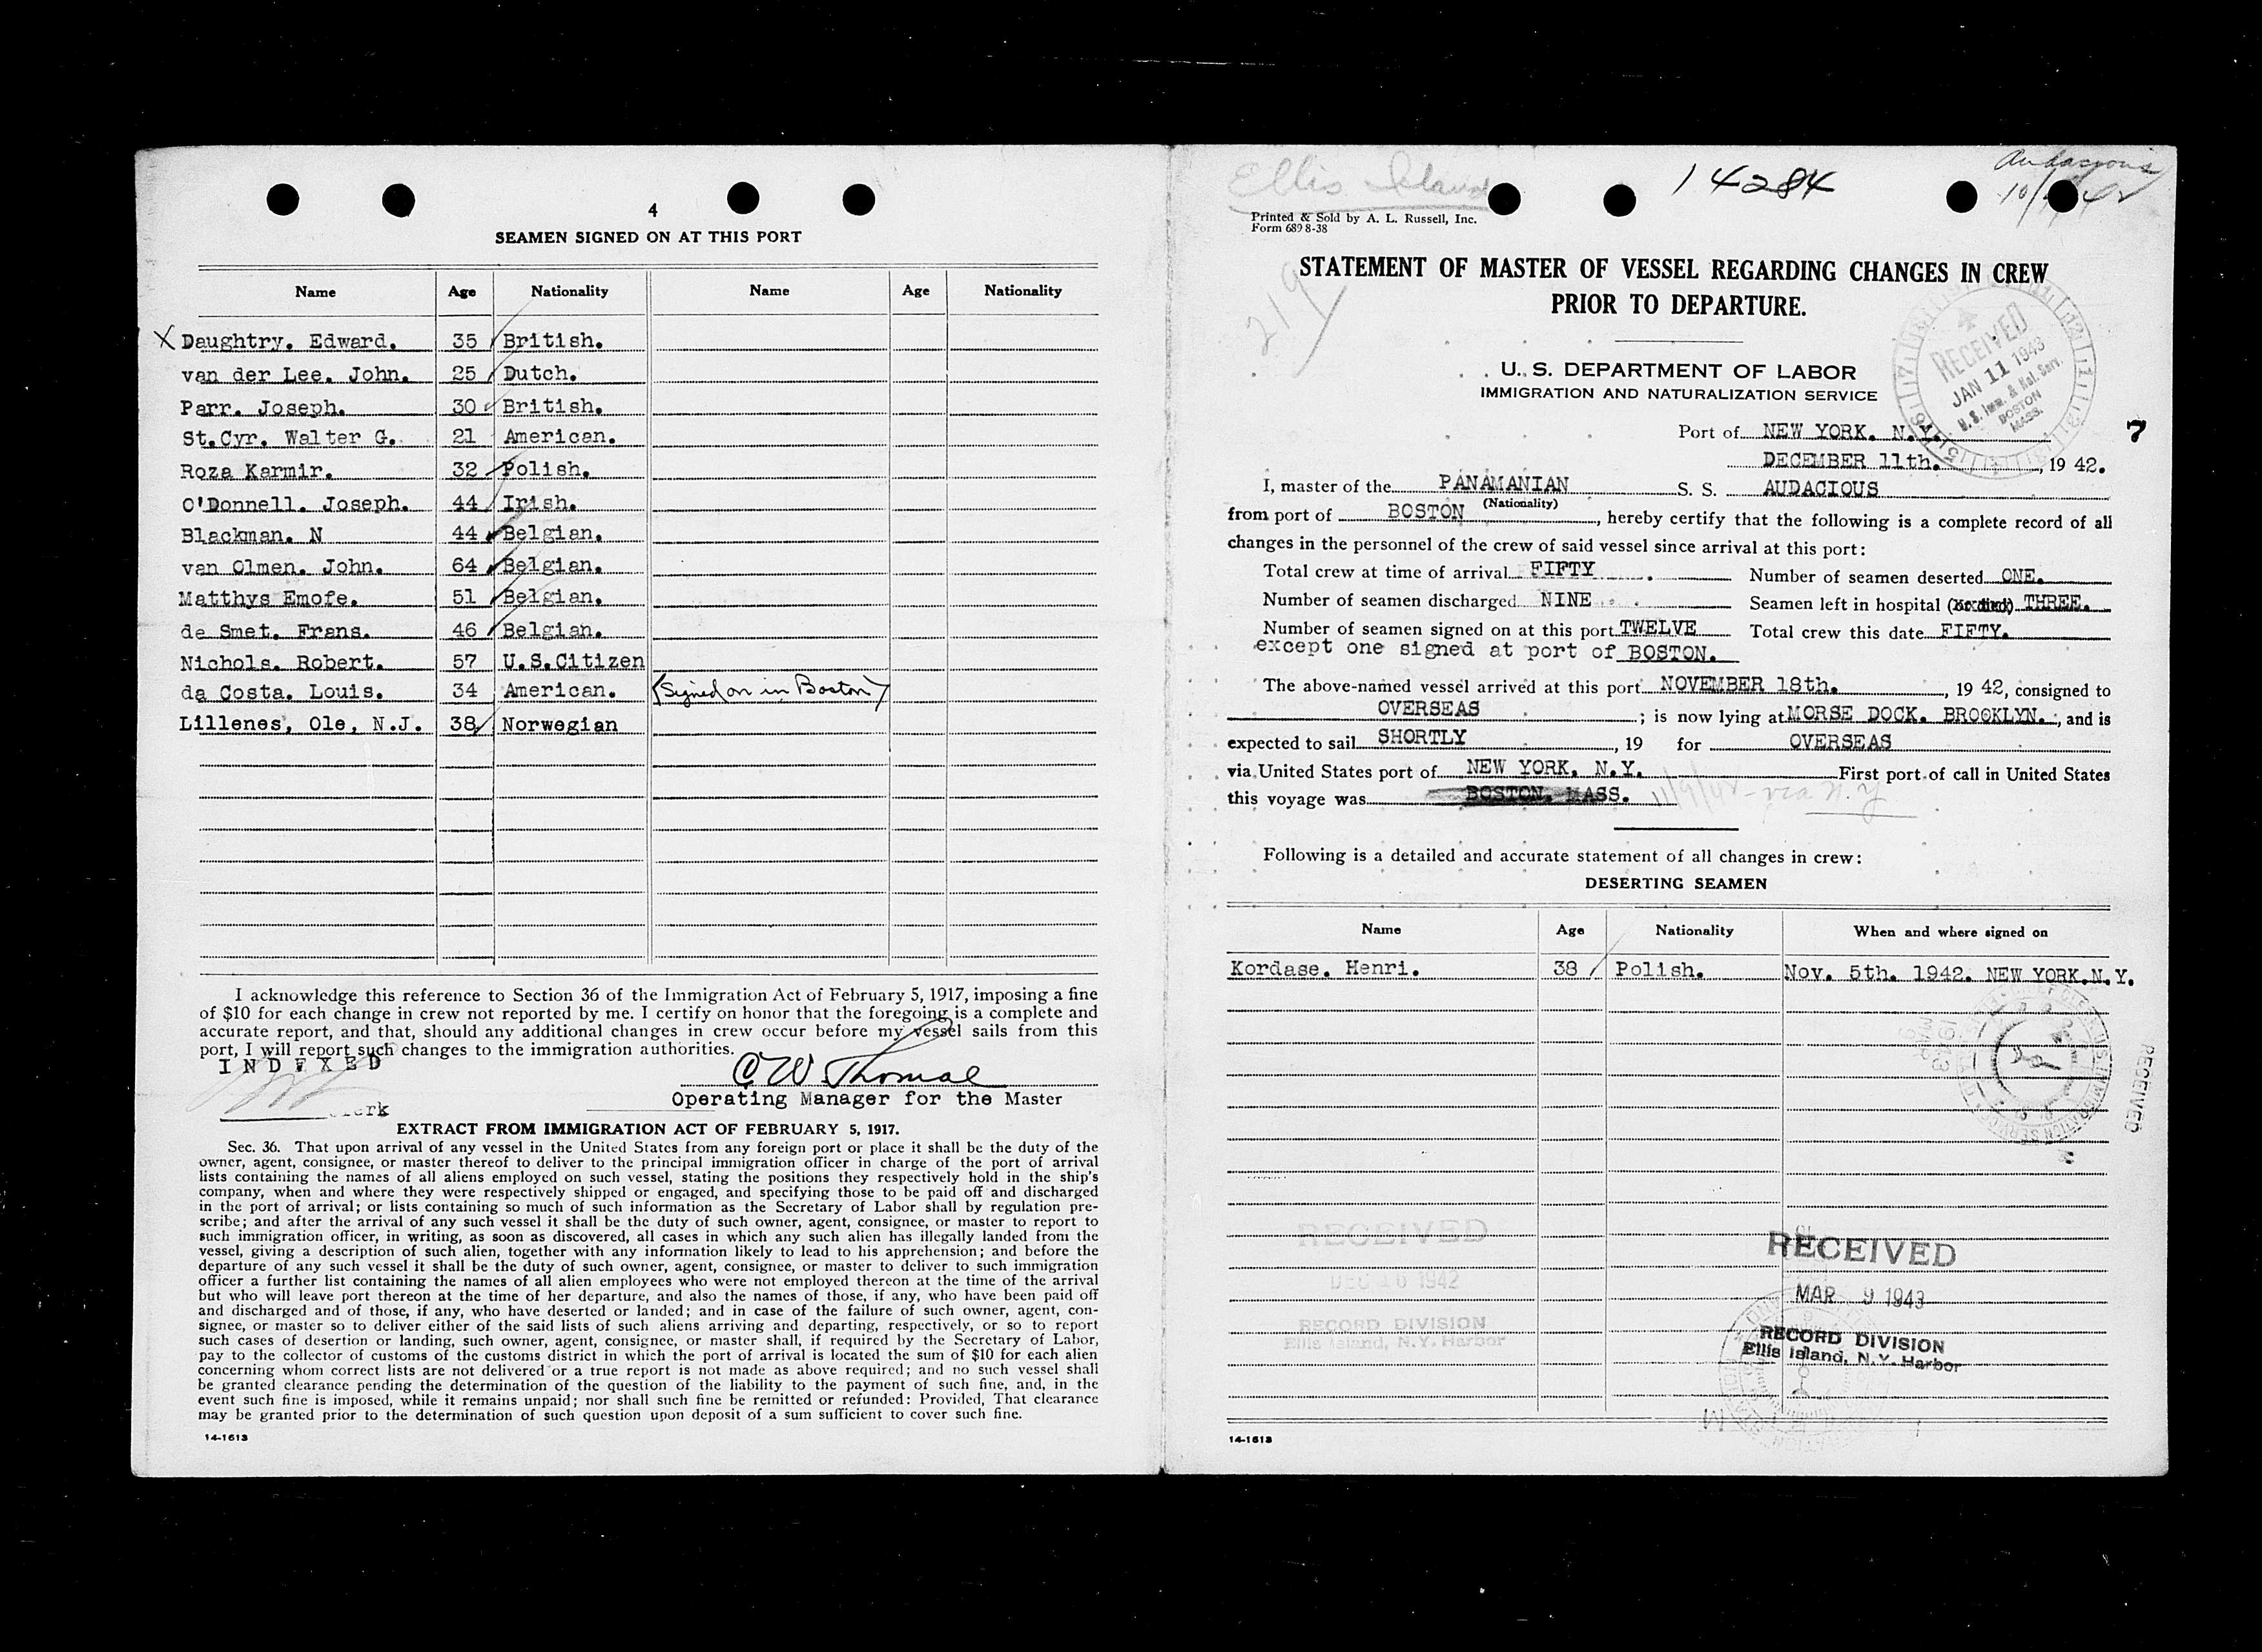 4
SEAMEN SIGNED ON AT THIS PORT
Name Age Nationality Name Age Nationality
X Daughtry. Edward. 35 British.
van der Lee. John. 25 Dutch.
Parr. Joseph. 30 British.
St.Cyr. Walter G. 21 American.
Roza Karmir. 32 Polish.
O'Donnell. Joseph. 44 Irish.
Blackman. N 44 Belgian.
van Olmen. John. 64 Belgian.
Matthys Emofe. 51 Belgian.
de Smet. Frans. 46 Belgian.
Nichols. Robert. 57 U.S.Citizen
da Costa. Louis. 34 American. (Signed on in Boston)
Lillenes, Ole, N.J. 38 Norwegian
I acknowledge this reference to Section 36 of the Immigration Act of February 5, 1917, imposing a fine
of $10 for each change in crew not reported by me. I certify on honor that the foregoing is a complete and
accurate report, and that, should any additional changes in crew occur before my vessel sails from this
port, I will report such changes to the immigration authorities.
INDEXED
C W Thomas
Operating Manager for the Master
EXTRACT FROM IMMIGRATION ACT OF FEBRUARY 5, 1917.
Sec. 36. That upon arrival of any vessel in the United States from any foreign port or place it shall be the duty of the
owner, agent, consignee, or master thereof to deliver to the principal immigration officer in charge of the port of arrival
lists containing the names of all aliens employed on such vessel, stating the positions they respectively hold in the ship's
company, when and where they were respectively shipped or engaged, and specifying those to be paid off and discharged
in the port of arrival; or lists containing so much of such information as the Secretary of Labor shall by regulation pre-
scribe; and after the arrival of any such vessel it shall be the duty of such owner, agent, consignee, or master to report to
such immigration officer, in writing, as soon as discovered, all cases in which any such alien has illegally landed from the
vessel, giving a description of such alien, together with any information likely to lead to his apprehension; and before the
departure of any such vessel it shall be the duty of such owner, agent, consignee, or master to deliver to such immigration
officer a further list containing the names of all alien employees who were not employed thereon at the time of the arrival
but who will leave port thereon at the time of her departure, and also the names of those, if any, who have been paid off
and discharged and of those, if any, who have deserted or landed; and in case of the failure of such owner, agent, con-
signee, or master so to deliver either of the said lists of such aliens arriving and departing, respectively, or so to report
such cases of desertion or landing, such owner, agent, consignee, or master shall, if required by the Secretary of Labor,
pay to the collector of customs of the customs district in which the port of arrival is located the sum of $10 for each alien
concerning whom correct lists are not delivered or a true report is not made as above required; and no such vessel shall
be granted clearance pending the determination of the question of the liability to the payment of such fine, and, in the
event such fine is imposed, while it remains unpaid; nor shall such fine be remitted or refunded: Provided, That clearance
may be granted prior to the determination of such question upon deposit of a sum sufficient to cover such fine.
14-1613
Ellis Island 14284 Audacious
Printed & Sold by A. L. Russell, Inc.
Form 689 8-38
219
STATEMENT OF MASTER OF VESSEL REGARDING CHANGES IN CREW
PRIOR TO DEPARTURE.
U. S. DEPARTMENT OF LABOR
IMMIGRATION AND NATURALIZATION SERVICE
RECEIVED
JAN 11 1943
U.S. Imm. & Nat. Serv.
BOSTON
MASS.
Port of NEW YORK. N.Y. 7
DECEMBER 11th. , 19 42.
I, master of the PANAMANIAN S. S. AUDACIOUS
(Nationality)
from port of BOSTON , hereby certify that the following is a complete record of all
changes in the personnel of the crew of said vessel since arrival at this port:
Total crew at time of arrival FIFTY Number of seamen deserted ONE.
Number of seamen discharged NINE Seamen left in hospital (or died) THREE.
Number of seamen signed on at this port TWELVE Total crew this date FIFTY.
except one signed at port of BOSTON.
The above-named vessel arrived at this port NOVEMBER 18th. , 19 42, consigned to
OVERSEAS ; is now lying at MORSE DOCK. BROOKLYN. , and is
expected to sail SHORTLY , 19 for OVERSEAS
via United States port of NEW YORK. N.Y. First port of call in United States
this voyage was BOSTON. MASS. 11/9/42 - via N.Y
Following is a detailed and accurate statement of all changes in crew:
DESERTING SEAMEN
Name Age Nationality When and where signed on
Kordase. Henri. 38 Polish. Nov. 5th. 1942. NEW YORK.N.Y.
RECEIVED
RECEIVED
DEC 16 1942
RECORD DIVISION
Ellis Island, N.Y. Harbor
RECEIVED
MAR 9 1943
RECORD DIVISION
Ellis Island, N.Y. Harbor
14-1613